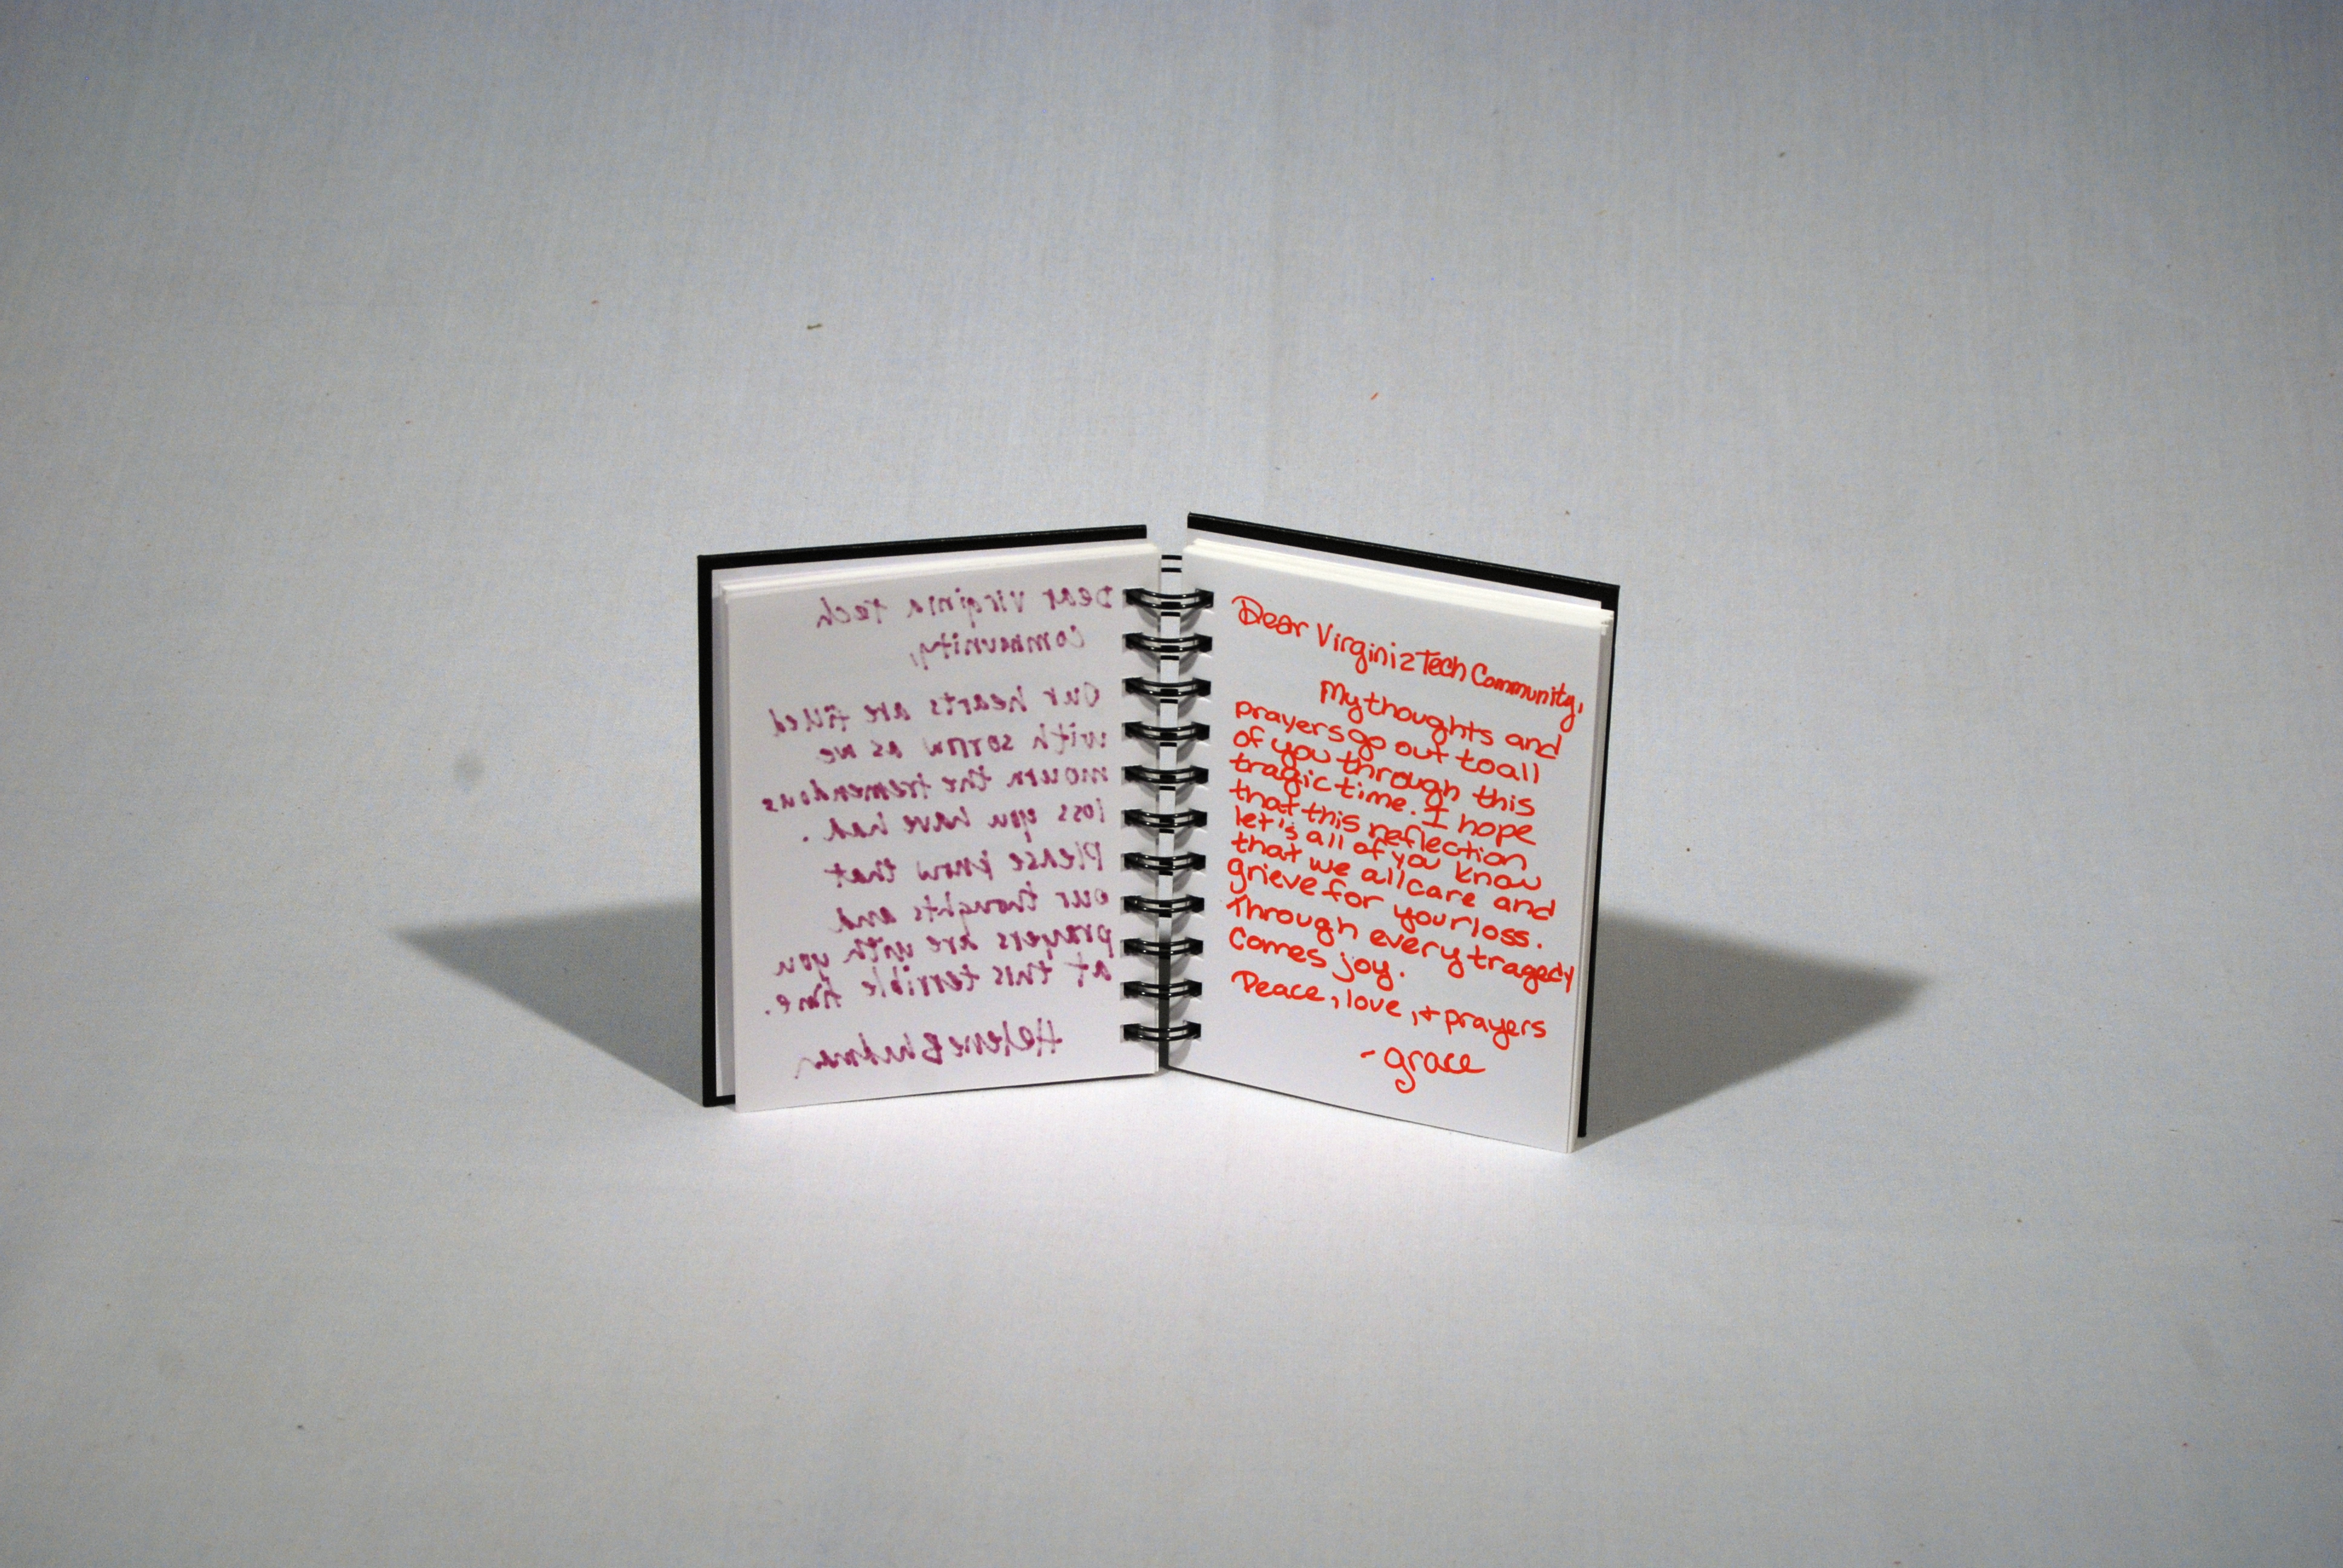 Dear Virginia Tech
Community,
Our hearts are filled
with sorrow as we
mourn the tremendous
loss you have had.
Please know that
our thoughts and
prayers are with you
at this terrible time.
Helene
Dear Virginia Tech Community,
My thoughts and
prayers go out to all
of you through this
tragic time. I hope
that this reflection
let's all of you know
that we all care and
grieve for your loss.
Through every tragedy
comes joy.
Peace, love, + prayers
- grace